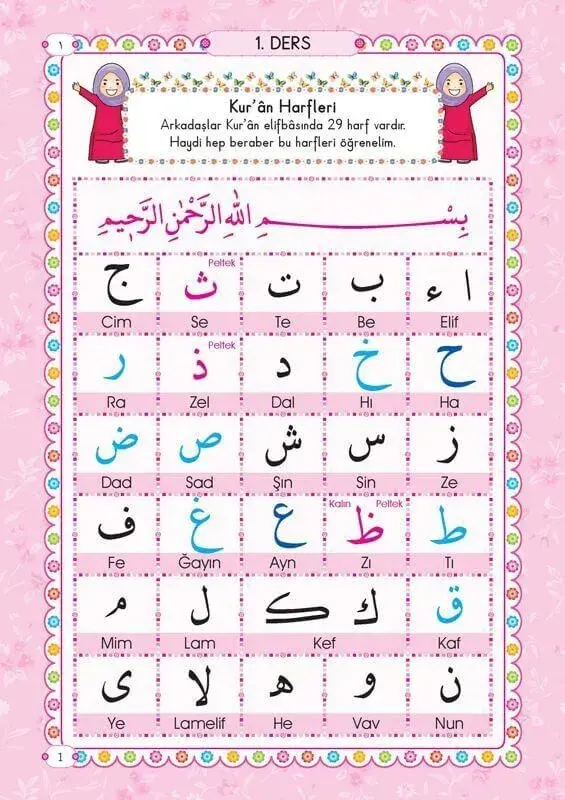 ١
1. DERS
Kur'ân Harfleri
Arkadaşlar Kur'ân elifbâsında 29 harf vardır.
Haydi hep beraber bu harfleri öğrenelim.
بِسْمِ اللّٰهِ الرَّحْمٰنِ الرَّحٖيمِ
Peltek
ا ء ب ت ث ج
Elif Be Te Se Cim
Peltek
ح خ د ذ ر
Ha Hı Dal Zel Ra
ز س ش ص ض
Ze Sin Şın Sad Dad
Kalın Peltek
ط ظ ع غ ف
Tı Zı Ayn Ğayın Fe
ق ك ک ل م
Kaf Kef Lam Mim
ن و ه لا ى
Nun Vav He Lamelif Ye
1